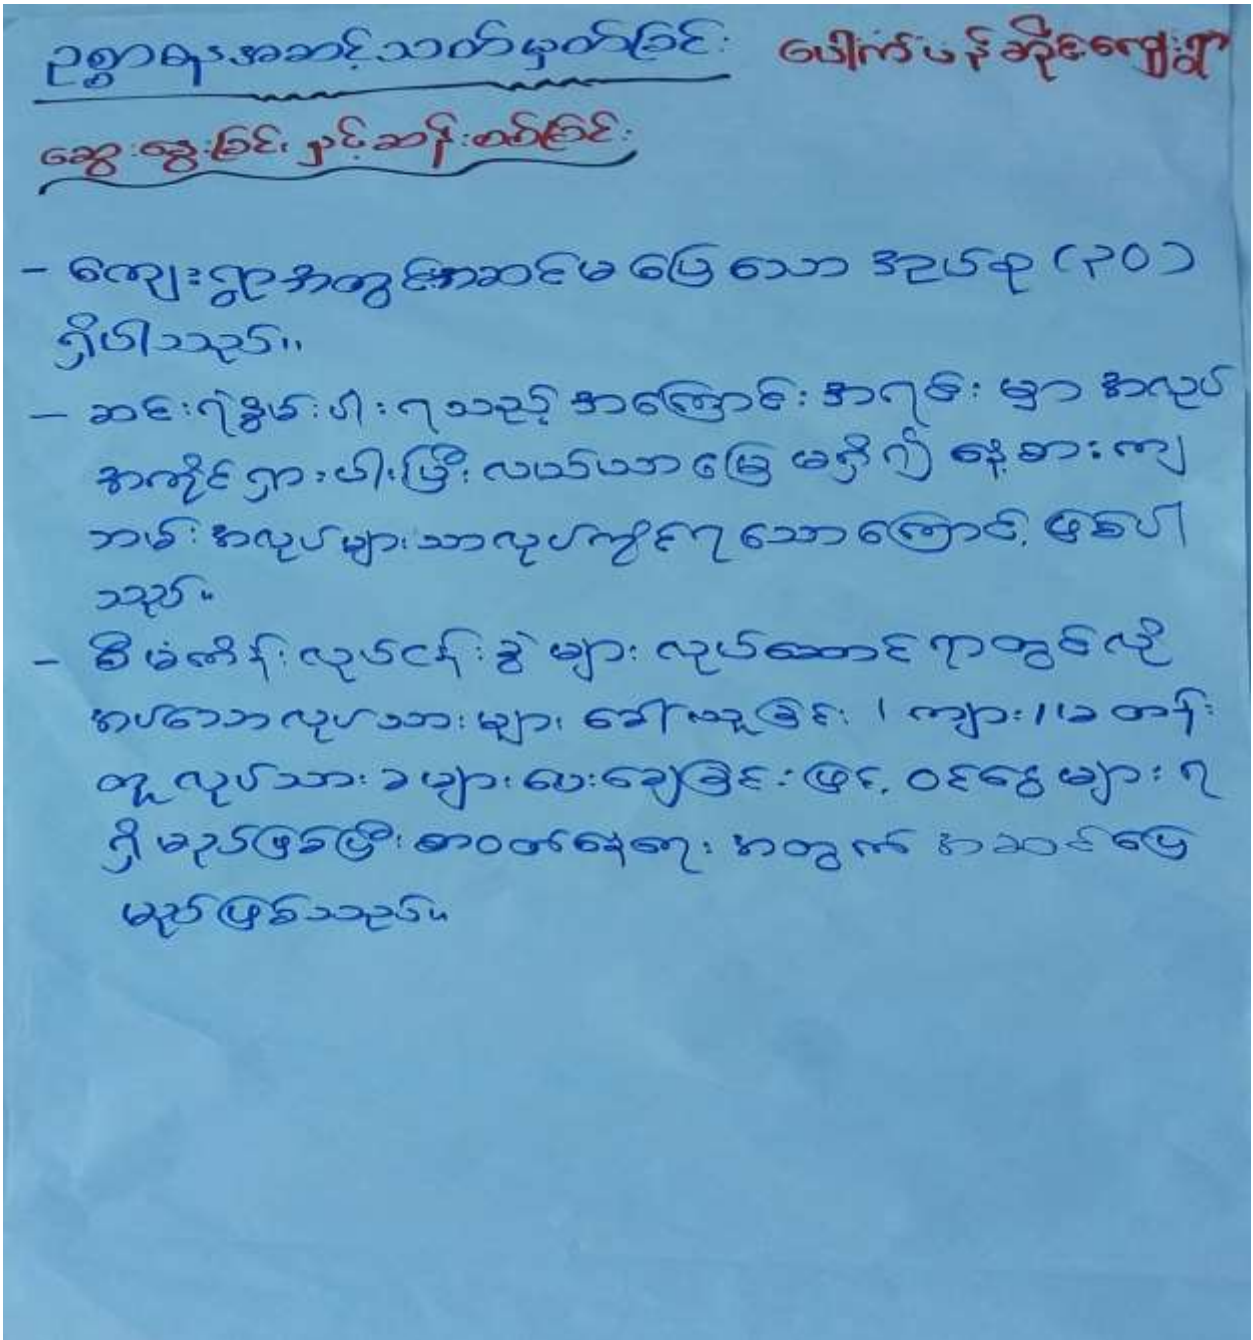 ဥစ္စာဓနအဆင့်သတ်မှတ်ခြင်း ပေါက်ပန်ဆိုင်ကျေးရွာ
ဆွေးနွေးခြင်း နှင့်ဆန်းစစ်ခြင်း
- ကျေးရွာအတွင်းအဆင်မပြေသော အုပ်စု (၃၀)
ရှိပါသည်။
- ဆင်းရဲနွမ်းပါးရသည့် အကြောင်းအရင်းမှာ အလုပ်
အကိုင်ရှားပါးပြီး လယ်ယာမြေ မရှိ၍ နေ့စားကျ
ဘမ်းအလုပ်များသာလုပ်ကိုင်ရသောကြောင့် ဖြစ်ပါ
သည်။
- စီမံကိန်းလုပ်ငန်းခွဲများ လုပ်ဆောင်ရာတွင်လို
အပ်သောလုပ်သားများ ခေါ်ယူခြင်း၊ ကျား/မ တန်း
တူလုပ်သားခများပေးချေခြင်းဖြင့် ဝင်ငွေများရ
ရှိမည်ဖြစ်ပြီး စားဝတ်နေရေး အတွက် အဆင်ပြေ
မည်ဖြစ်သည်။